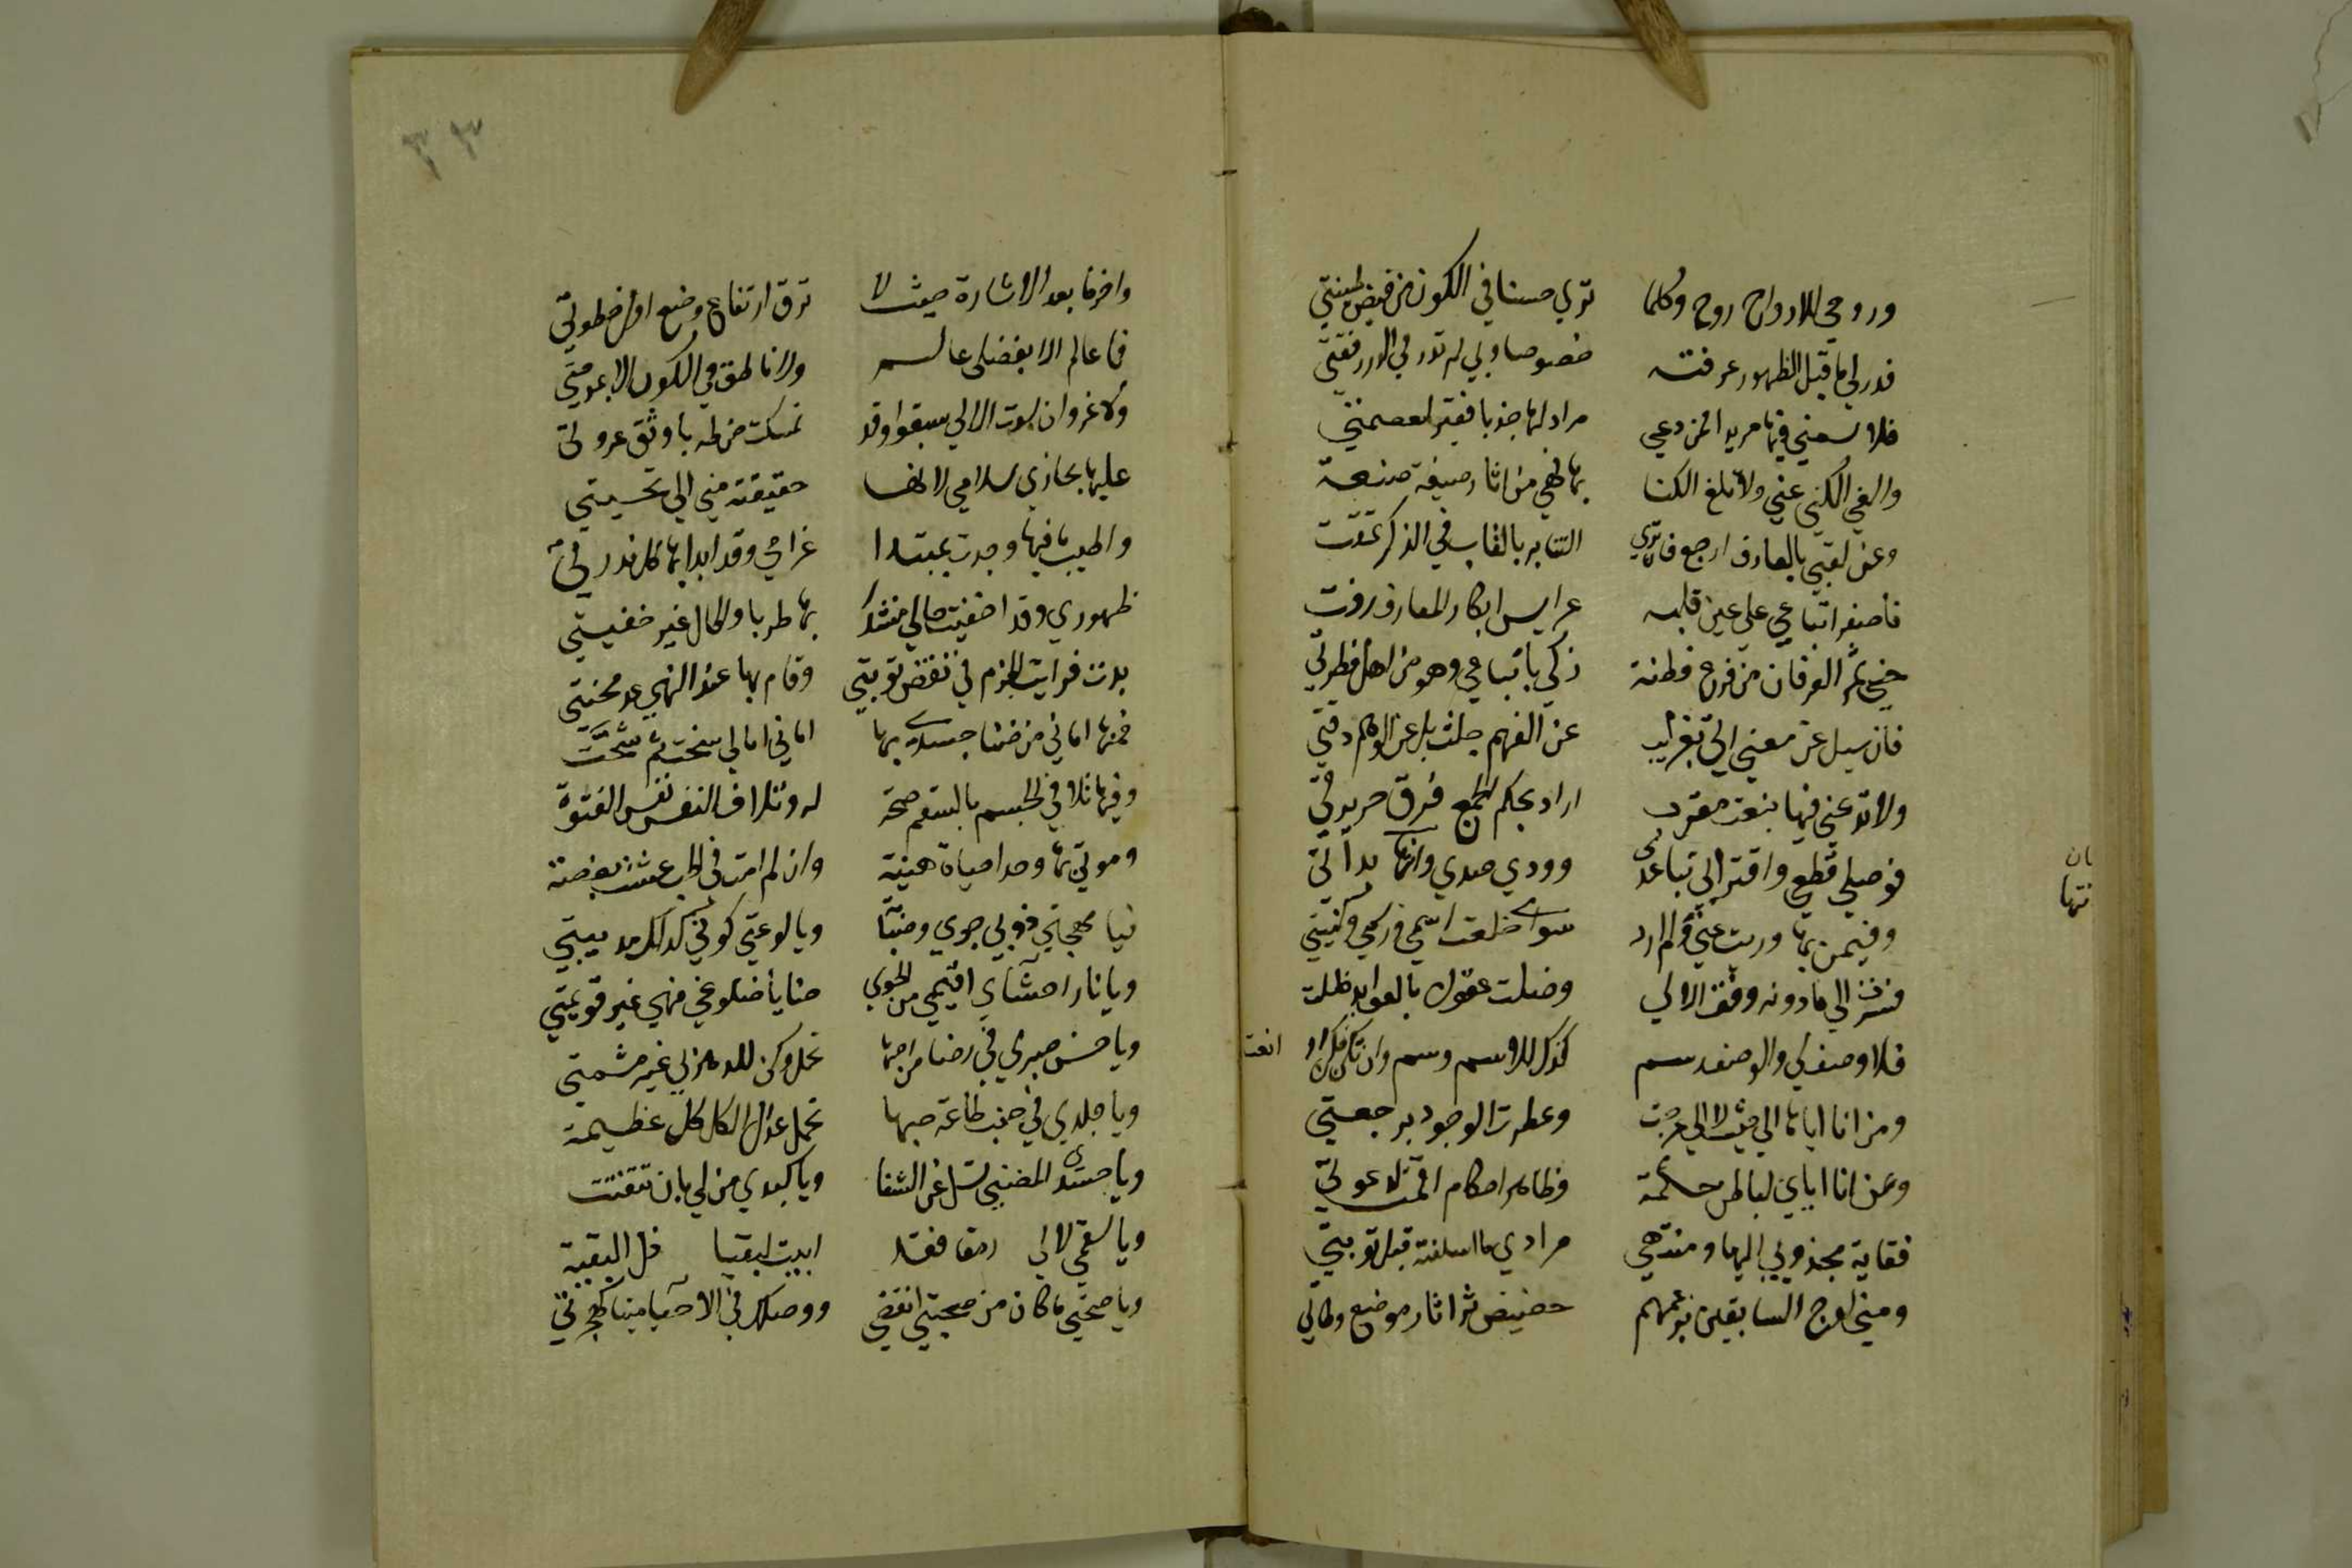 وروحي للارواح روح وكلما تري حسنا في الكون من فيض طينتي
فذر لي ما قبل الظهور عرفته خصوصا وبي لم تدر في الذر رفقتي
فلا تسمني فيها مريدا فمن دعي مراد لها جذبا فقير لعصمتي
والغي الكني عني ولا تلغ الكنا بها فهي من اثار صيغة صنعة
وعن لقبي بالعارف ارجع فان تري التنابز بالقاب في الذكر تمقت
فاصغر اتباعي علي عين قلبه عرايس ابكار المعارف زفت
جني ثمر العرفان من فرع فطنة زكي باتباعي وهو من اصل فطرتي
فان سيل عن معني اتي بغرايب عن الفهم جلت بل عن الوهم دقتي
ولا تدعني فيها بنعت مقرب اراه بحكم الجمع فرق جريرتي
فوصلي قطعي واقترابي تباعدي وودي صدي وانتهاي بداتي
وفي من بها وريت عني ولم ارد سواي خلعت اسمي ورسمي وكنيتي
فسرت الي ما دونه وقف الالي وضلت عقول بالعوايد ظلت
فلا وصف لي والوصف رسم كذاك الاسم وسم وان تكن فكن او انعت
ومن انا اياها الي حيث لا الي عرجت وعطرت الوجود برجعتي
وعن انا اياي لباطن حكمة وظاهر احكام اقمت لدعوتي
فغاية مجذوبي اليها ومنتهي مرادي ما اسلفته قبل توبتي
ومني اوج السابقين بزعمهم حضيض ثري اثار موضع وطاتي
واخر ما بعد الاشارة حيث لا ترق ارتفاع وضع اول خطوتي
فما عالم الا بفضلي عالم ولا ناطق في الكون الا بمدحتي
ولا غرو ان سدت الالي سبقوا وقد تمسكت من طه باوثق عروتي
عليها مجازي سلامي لانما حقيقته مني الي تحيتي
واطيب ما فيها وجدت بمبتدا غرامي وقد ابدا بها كل نذرتي
ظهوري وقد اخفيت حالي منشدا بها طربا والحال غير خفيتي
بدت فرايت الحزم في نقض توبتي وقام بها عند النهي عذر محنتي
فمنها اماني من ضنا جسدي بها اماني امالي سخت ثم شحت
وفيها تلافي الجسم بالسقم صحة له وتلاف النفس نفس الفتوة
وموتي بها وجدا حياة هنية وان لم امت في الحب عشت بغصة
فيا مهجتي ذوبي جوي وضنا ويا لوعتي كوني كذاك مذيبتي
ويا نار احشاي اقيمي من الجوي حنايا ضلوعي فهي غير قويمتي
ويا حسن صبري في رضا من احبها تجمل وكن للدهر بي غير مشمتي
ويا جلدي في جنب طاعة حبها تحمل عداك الكل كل عظيمة
ويا جسدي المضني تسل عن الشفا ويا كبدي من لي بان تتفتت
ويا سقمي لا تبق لي رمقا فقد ابيت لبقيا ذل البقية
ويا صحتي ما كان من صحبتي انقضي ووصلك في الاحيا ميتا كهجرتي